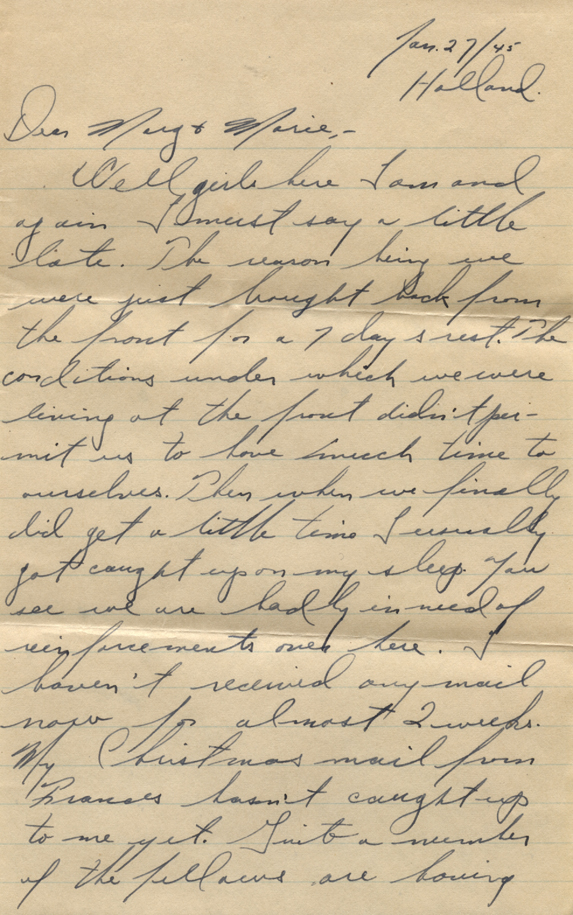 Jan. 27/45
Holland.
Dear Marg & Marie,-
Well girls here I am and
again I must say a little
late. The reason being we
were just brought back from
the front for a 7 days rest. The
conditions under which we were
living at the front didn't per-
mit us to have much time to
ourselves. Then when we finally
did get a little time I usually
got caught up on my sleep. You
see we are badly in need of
reinforcements over here. I
haven't received any mail
now for almost 2 weeks.
My Christmas mail from
Frances hasn't caught up
to me yet. Quite a number
of the fellows are having